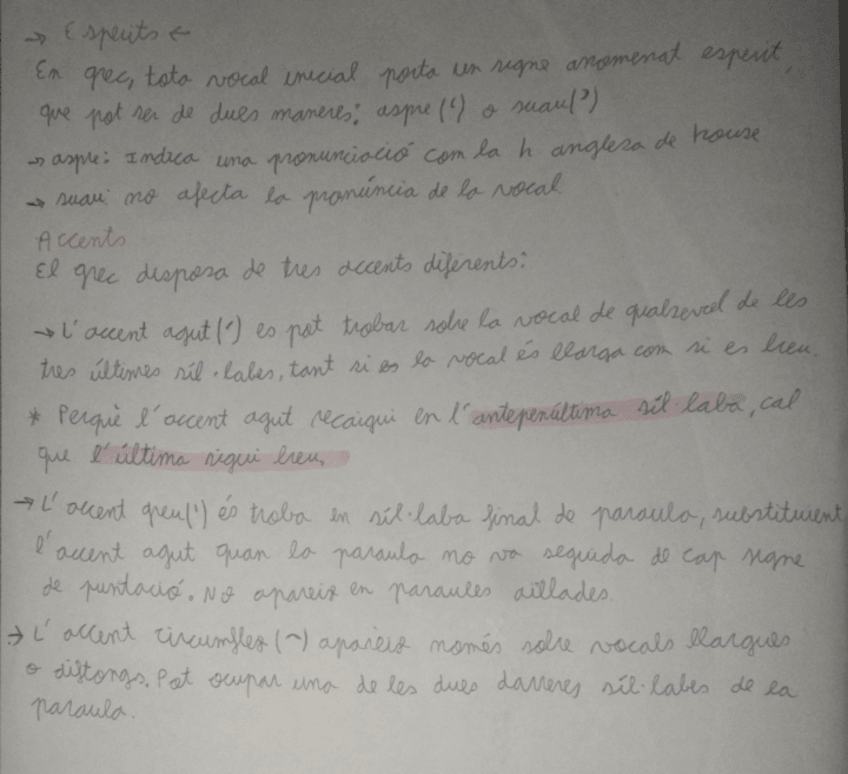 → Esperits ←
En grec, tota vocal inicial porta un signe anomenat esperit,
que pot ser de dues maneres: aspre (ʽ) o suau (ʼ)
→ aspre: Indica una pronunciació com la h anglesa de house
→ suau: no afecta la pronúncia de la vocal
Accents
El grec disposa de tres accents diferents:
→ L'accent agut (´) es pot trobar sobre la vocal de qualsevol de les
tres últimes síl·labes, tant si es la vocal és llarga com si es breu.
* Perquè l'accent agut recaigui en l'antepenúltima síl·laba, cal
que l'última sigui breu.
→ L'accent greu (`) és troba en síl·laba final de paraula, substituint
l'accent agut quan la paraula no va seguida de cap signe
de puntació. No apareix en paraules aïllades.
→ L'accent circumflex (~) apareix només sobre vocals llargues
o diftongs. Pot ocupar una de les dues darreres síl·labes de la
paraula.